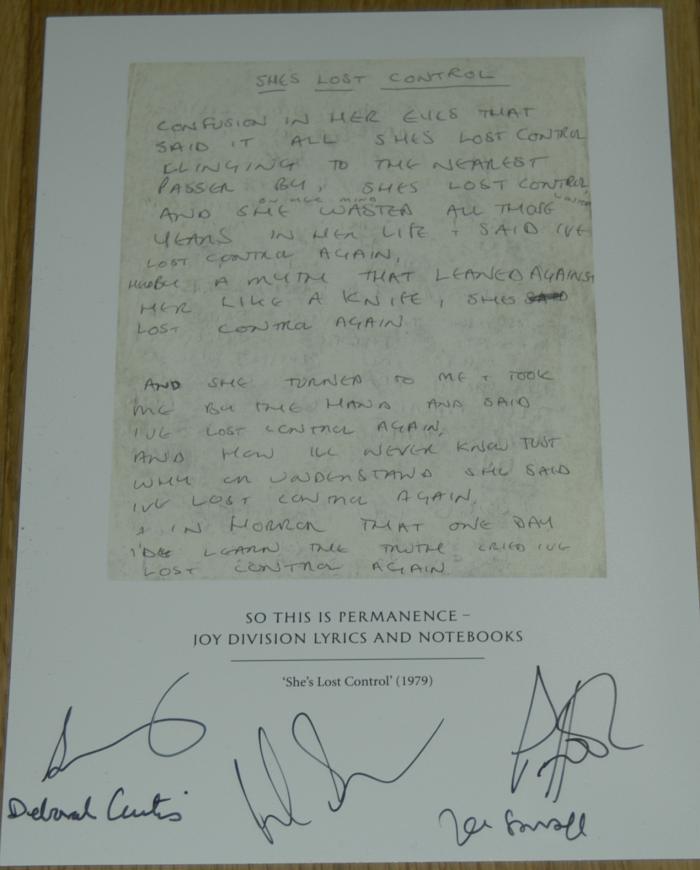 SHES LOST CONTROL
CONFUSION IN HER EYES THAT
SAID IT ALL SHES LOST CONTROL
CLINGING TO THE NEAREST
PASSER BY, SHES LOST CONTROL,
ON HER MIND
AND SHE WASTED ALL THOSE WASTED
YEARS IN HER LIFE + SAID IVE
LOST CONTROL AGAIN,
A MYTH THAT LEANED AGAINST
HER LIKE A KNIFE, SHES SAID
LOST CONTROL AGAIN.
AND SHE TURNED TO ME + TOOK
ME BY THE HAND AND SAID
IVE LOST CONTROL AGAIN,
AND HOW ILL NEVER KNOW JUST
WHY OR UNDERSTAND SHE SAID
IVE LOST CONTROL AGAIN,
+ IN HORROR THAT ONE DAY
I'D LEARN THE TRUTH CRIED IVE
LOST CONTROL AGAIN.
SO THIS IS PERMANENCE –
JOY DIVISION LYRICS AND NOTEBOOKS
‘She’s Lost Control’ (1979)
Deborah Curtis
Jon Savage